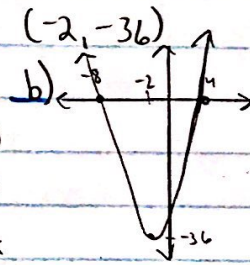 (-2, -36)
b) -8 -2 4
-36